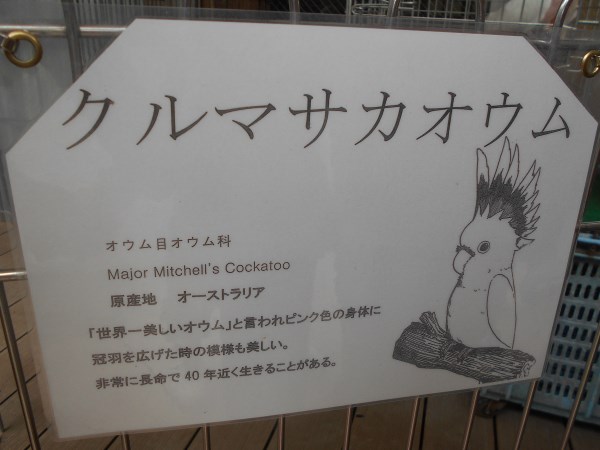 クルマサカオウム
オウム目オウム科
Major Mitchell's Cockatoo
原産地 オーストラリア
「世界一美しいオウム」と言われピンク色の身体に
冠羽を広げた時の模様も美しい。
非常に長命で40年近く生きることがある。